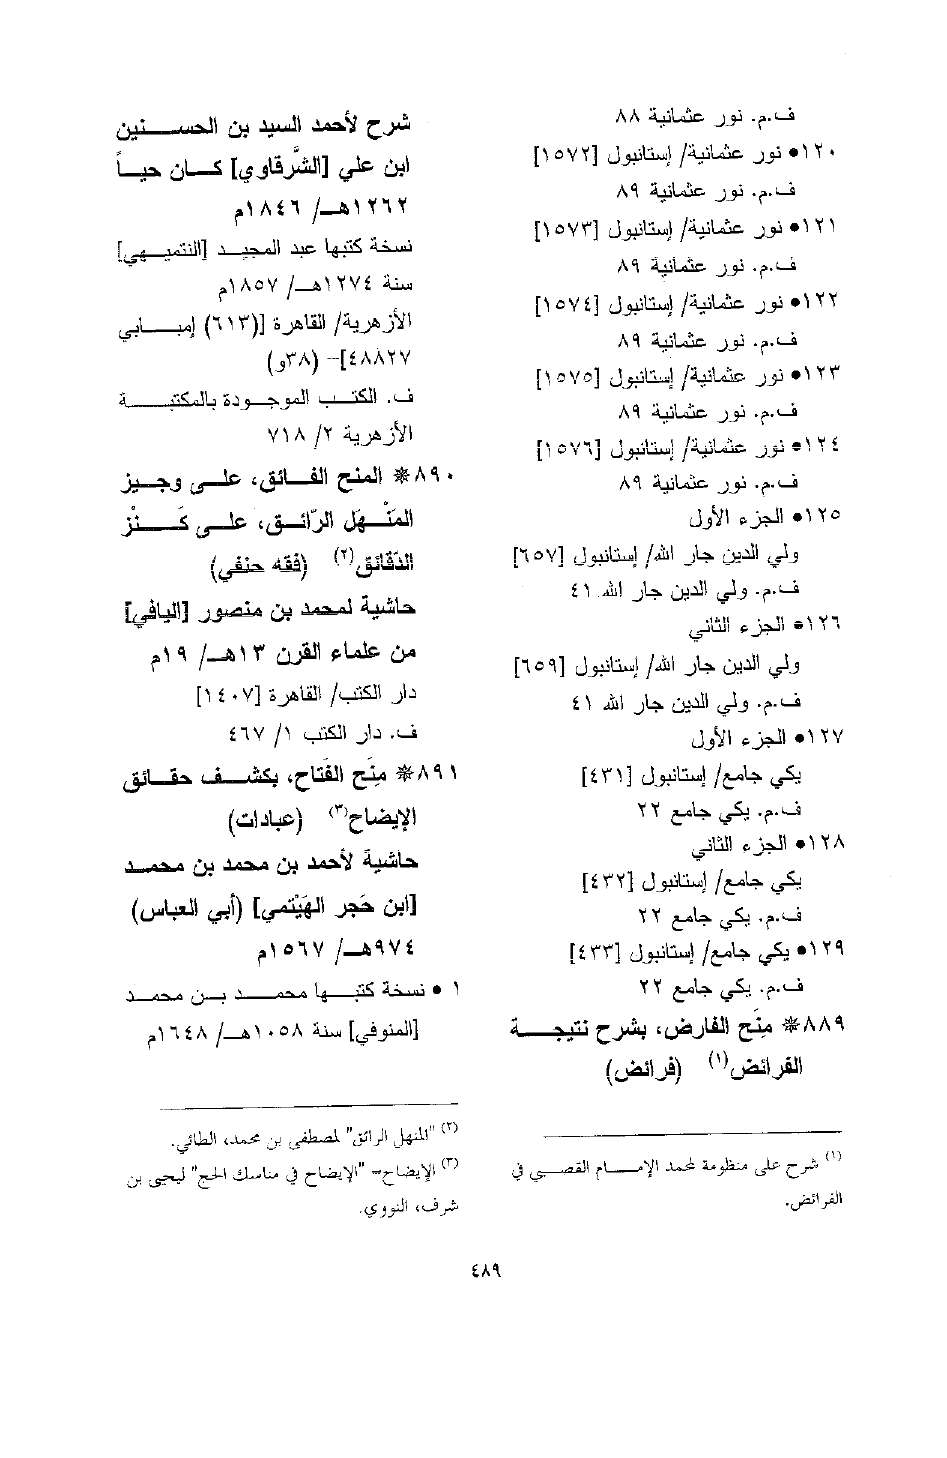 ف.م. نور عثمانية ٨٨
١٢٠• نور عثمانية/ إستانبول [١٥٧٢]
ف.م. نور عثمانية ٨٩
١٢١• نور عثمانية/ إستانبول [١٥٧٣]
ف.م. نور عثمانية ٨٩
١٢٢• نور عثمانية/ إستانبول [١٥٧٤]
ف.م. نور عثمانية ٨٩
١٢٣• نور عثمانية/ إستانبول [١٥٧٥]
ف.م. نور عثمانية ٨٩
١٢٤• نور عثمانية/ إستانبول [١٥٧٦]
ف.م. نور عثمانية ٨٩
١٢٥• الجزء الأول
ولي الدين جار الله/ إستانبول [٦٥٧]
ف.م. ولي الدين جار الله ٤١
١٢٦• الجزء الثاني
ولي الدين جار الله/ إستانبول [٦٥٩]
ف.م. ولي الدين جار الله ٤١
١٢٧• الجزء الأول
يكي جامع/ إستانبول [٤٣١]
ف.م. يكي جامع ٢٢
١٢٨• الجزء الثاني
يكي جامع/ إستانبول [٤٣٢]
ف.م. يكي جامع ٢٢
١٢٩• يكي جامع/ إستانبول [٤٣٣]
ف.م. يكي جامع ٢٢
٨٨٩* مِنَح الفارض، بشرح نتيجة
الفرائض(١) (فرائض)
(١) شرح على منظومة لمحمد الإمام القصبي في
الفرائض.
شرح لأحمد السيد بن الحسنين
ابن علي [الشَّرقاوي] كان حياً
١٢٦٢هـ/ ١٨٤٦م
نسخة كتبها عبد المجيد [النتميهي]
سنة ١٢٧٤هـ/ ١٨٥٧م
الأزهرية/ القاهرة [(٦١٣) إمبابي
٤٨٨٢٧]– (٣٨و)
ف. الكتب الموجودة بالمكتبة
الأزهرية ٢/ ٧١٨
٨٩٠* المنح الفائق، على وجيز
المَنْهَل الرّائق، على كَنْز
الدّقائق(٢) (فقه حنفي)
حاشية لمحمد بن منصور [اليافي]
من علماء القرن ١٣هـ/ ١٩م
دار الكتب/ القاهرة [١٤٠٧]
ف. دار الكتب ١/ ٤٦٧
٨٩١* مِنَح الفَتاح، بكشف حقائق
الإيضاح(٣) (عبادات)
حاشية لأحمد بن محمد بن محمد
[ابن حَجر الهَيْتمي] (أبي العباس)
٩٧٤هـ/ ١٥٦٧م
١ • نسخة كتبها محمد بن محمد
[المنوفي] سنة ١٠٥٨هـ/ ١٦٤٨م
(٢) "المنهل الرائق" لمصطفى بن محمد، الطائي.
(٣) الإيضاح= "الإيضاح في مناسك الحج" ليحيى بن
شرف، النووي.
٤٨٩